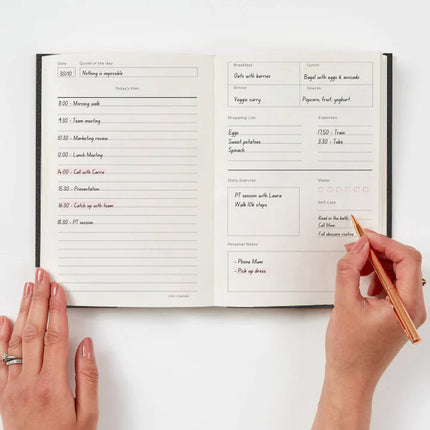 Date Quote of the day
30/10 Nothing is impossible
Today's Plan:
8:00 - Morning walk
9:30 - Team meeting
10:30 - Marketing review
12:00 - Lunch Meeting
14:00 - Call with Carrie
15:30 - Presentation
16:30 - Catch up with team
18:30 - PT session
Breakfast Lunch
Oats with berries Bagel with eggs & avocado
Dinner Snacks
Veggie curry Popcorn, fruit, yoghurt
Shopping List Expenses
Eggs 17.50 - Train
Sweet potatoes 3.30 - Tube
Spinach
Daily Exercise Water
PT session with Laura
Walk 10k steps
Self Care
Read in the bath
Call Mum
Full skincare routine
Personal Notes
- Phone Mum
- Pick up dress